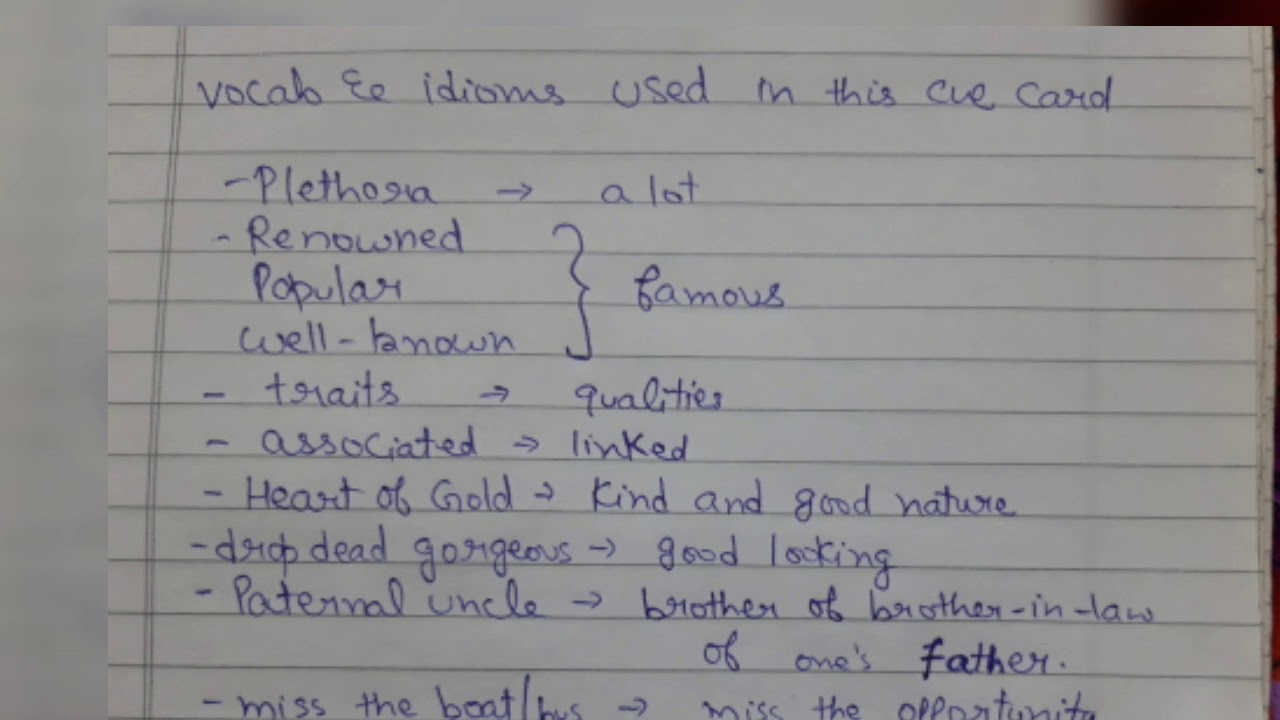 vocab & idioms used in this cue card
- Plethora → a lot
- Renowned
Popular
well-known } famous
- traits → qualities
- associated → linked
- Heart of Gold → Kind and good nature
- drop dead gorgeous → good looking
- Paternal uncle → brother of brother-in-law
of one's father.
- miss the boat/bus → miss the opportunity